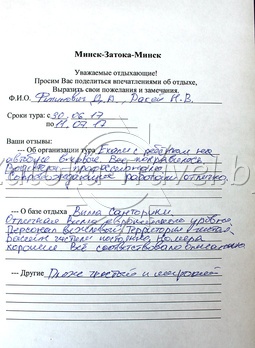 Минск-Затока-Минск
Уважаемые отдыхающие!
Просим Вас поделиться впечатлениями об отдыхе,
Выразить свои пожелания и замечания.
Ф.И.О. Д.А., М.В.
Сроки тура: с 30.06.17
по 11.07.17
Ваши отзывы:
--- Об организации тура Ехали с ребёнком на
автобусе впервые. Все понравилось
Сопровождающие работали отлично.
--- О базе отдыха Вилла Санторини.
Отличная вилла, европейского уровня.
Персонал вежливый. Территория чистая.
Бассейн чистили постоянно. Номера
хорошие. Всё соответствовало описанию.
--- Другие Пляж чистый и широкий